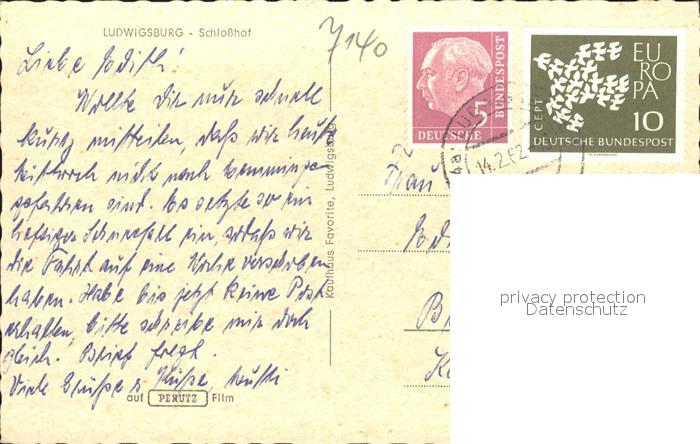 LUDWIGSBURG - Schloßhof
7140
Liebe Edith!
Wollte Dir nur schnell
kurz mitteilen, daß wir heute
Mittwoch nicht nach Memmingen
gefahren sind. Es setzte so ein
heftiger Schneefall ein, sodaß wir
die Fahrt auf eine Woche verschoben
haben. Habe bis jetzt keine Post
erhalten, bitte schreibe mir doch
gleich. Brief folgt.
Viele Grüße u. Küße,
auf PERUTZ Film
Kaufhaus Favorite, Ludwigsburg
5
DEUTSCHE BUNDESPOST
EUROPA
CEPT
10
DEUTSCHE BUNDESPOST
14.2.62
Frau
privacy protection
Datenschutz